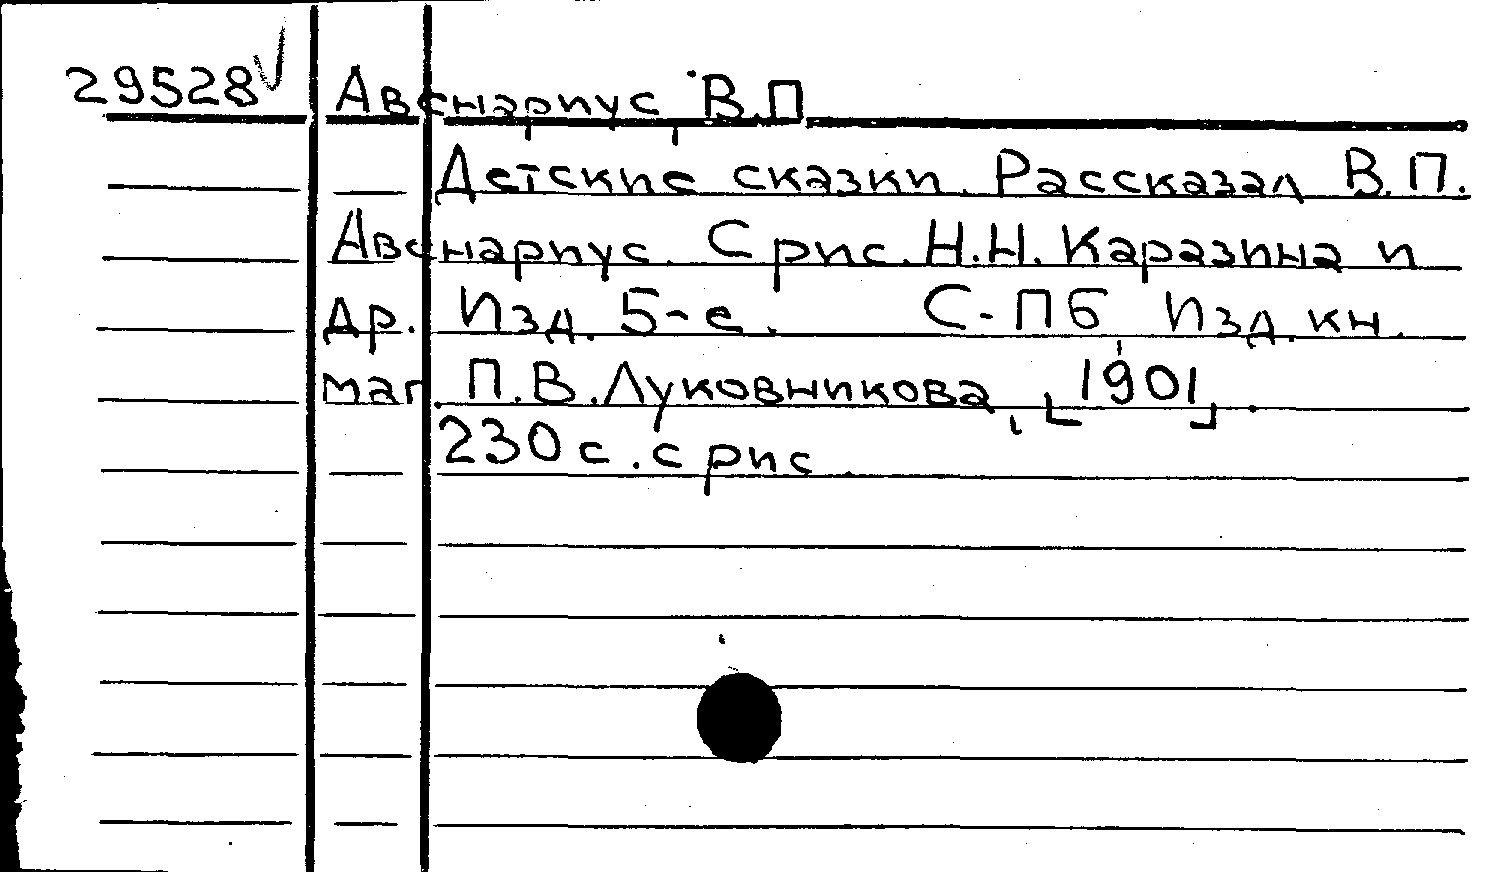 29528 Авенариус, В.П.
Детские сказки. Рассказал В.П.
Авенариус. С рис. Н.Н. Каразина и
др. Изд. 5-е. С-ПБ, Изд. кн.
маг. П.В. Луковникова, [1901].
230 с. с рис.